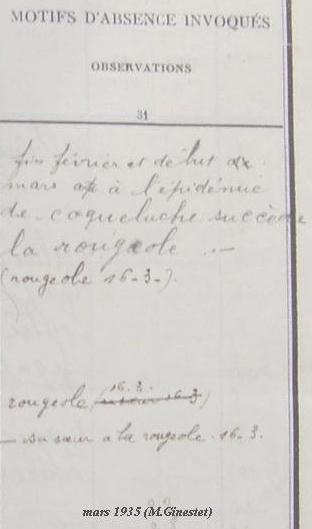 MOTIFS D'ABSENCE INVOQUÉS
OBSERVATIONS
31
fin février et début de
mars à l'épidémie
de coqueluche succède
la rougeole . —
(rougeole 16-3-).
16.3.
rougeole (16-3)
— sa sœur a la rougeole. 16-3.
mars 1935 (M.Ginestet)